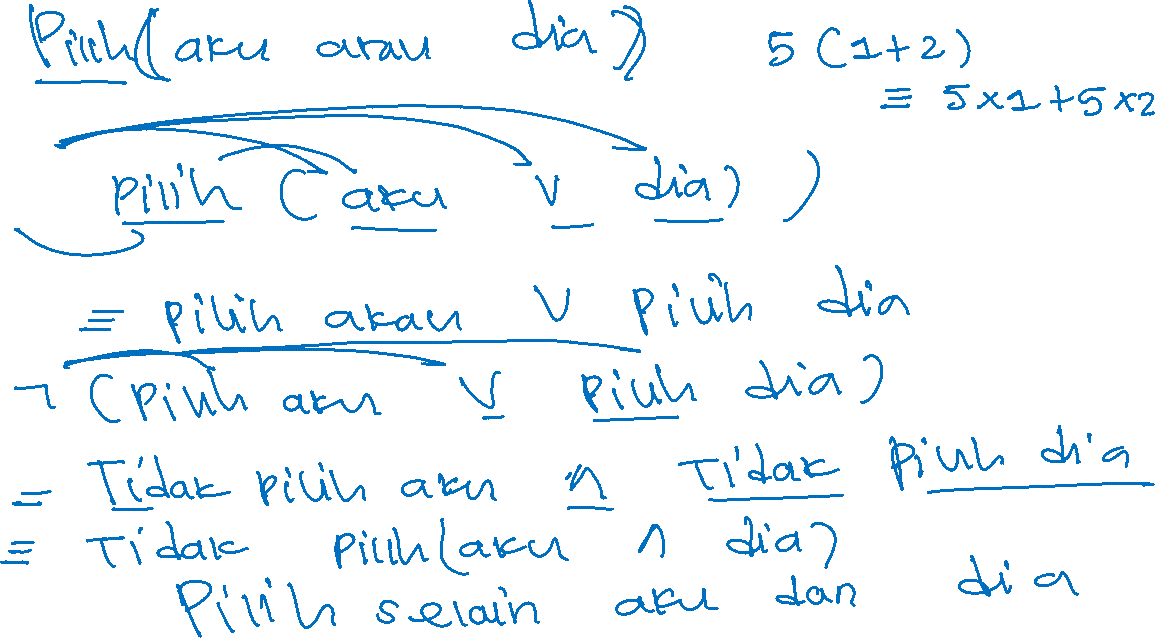 Pilih (aku atau dia) 5 (1+2)
≡ 5x1+5x2
pilih (aku ∨ dia) )
≡ pilih akau ∨ pilih dia
¬ (pilih aku ∨ pilih dia)
= Tidak pilih aku ∧ Tidak pilih dia
≡ Tidak pilih (aku ∧ dia)
Pilih selain aku dan dia